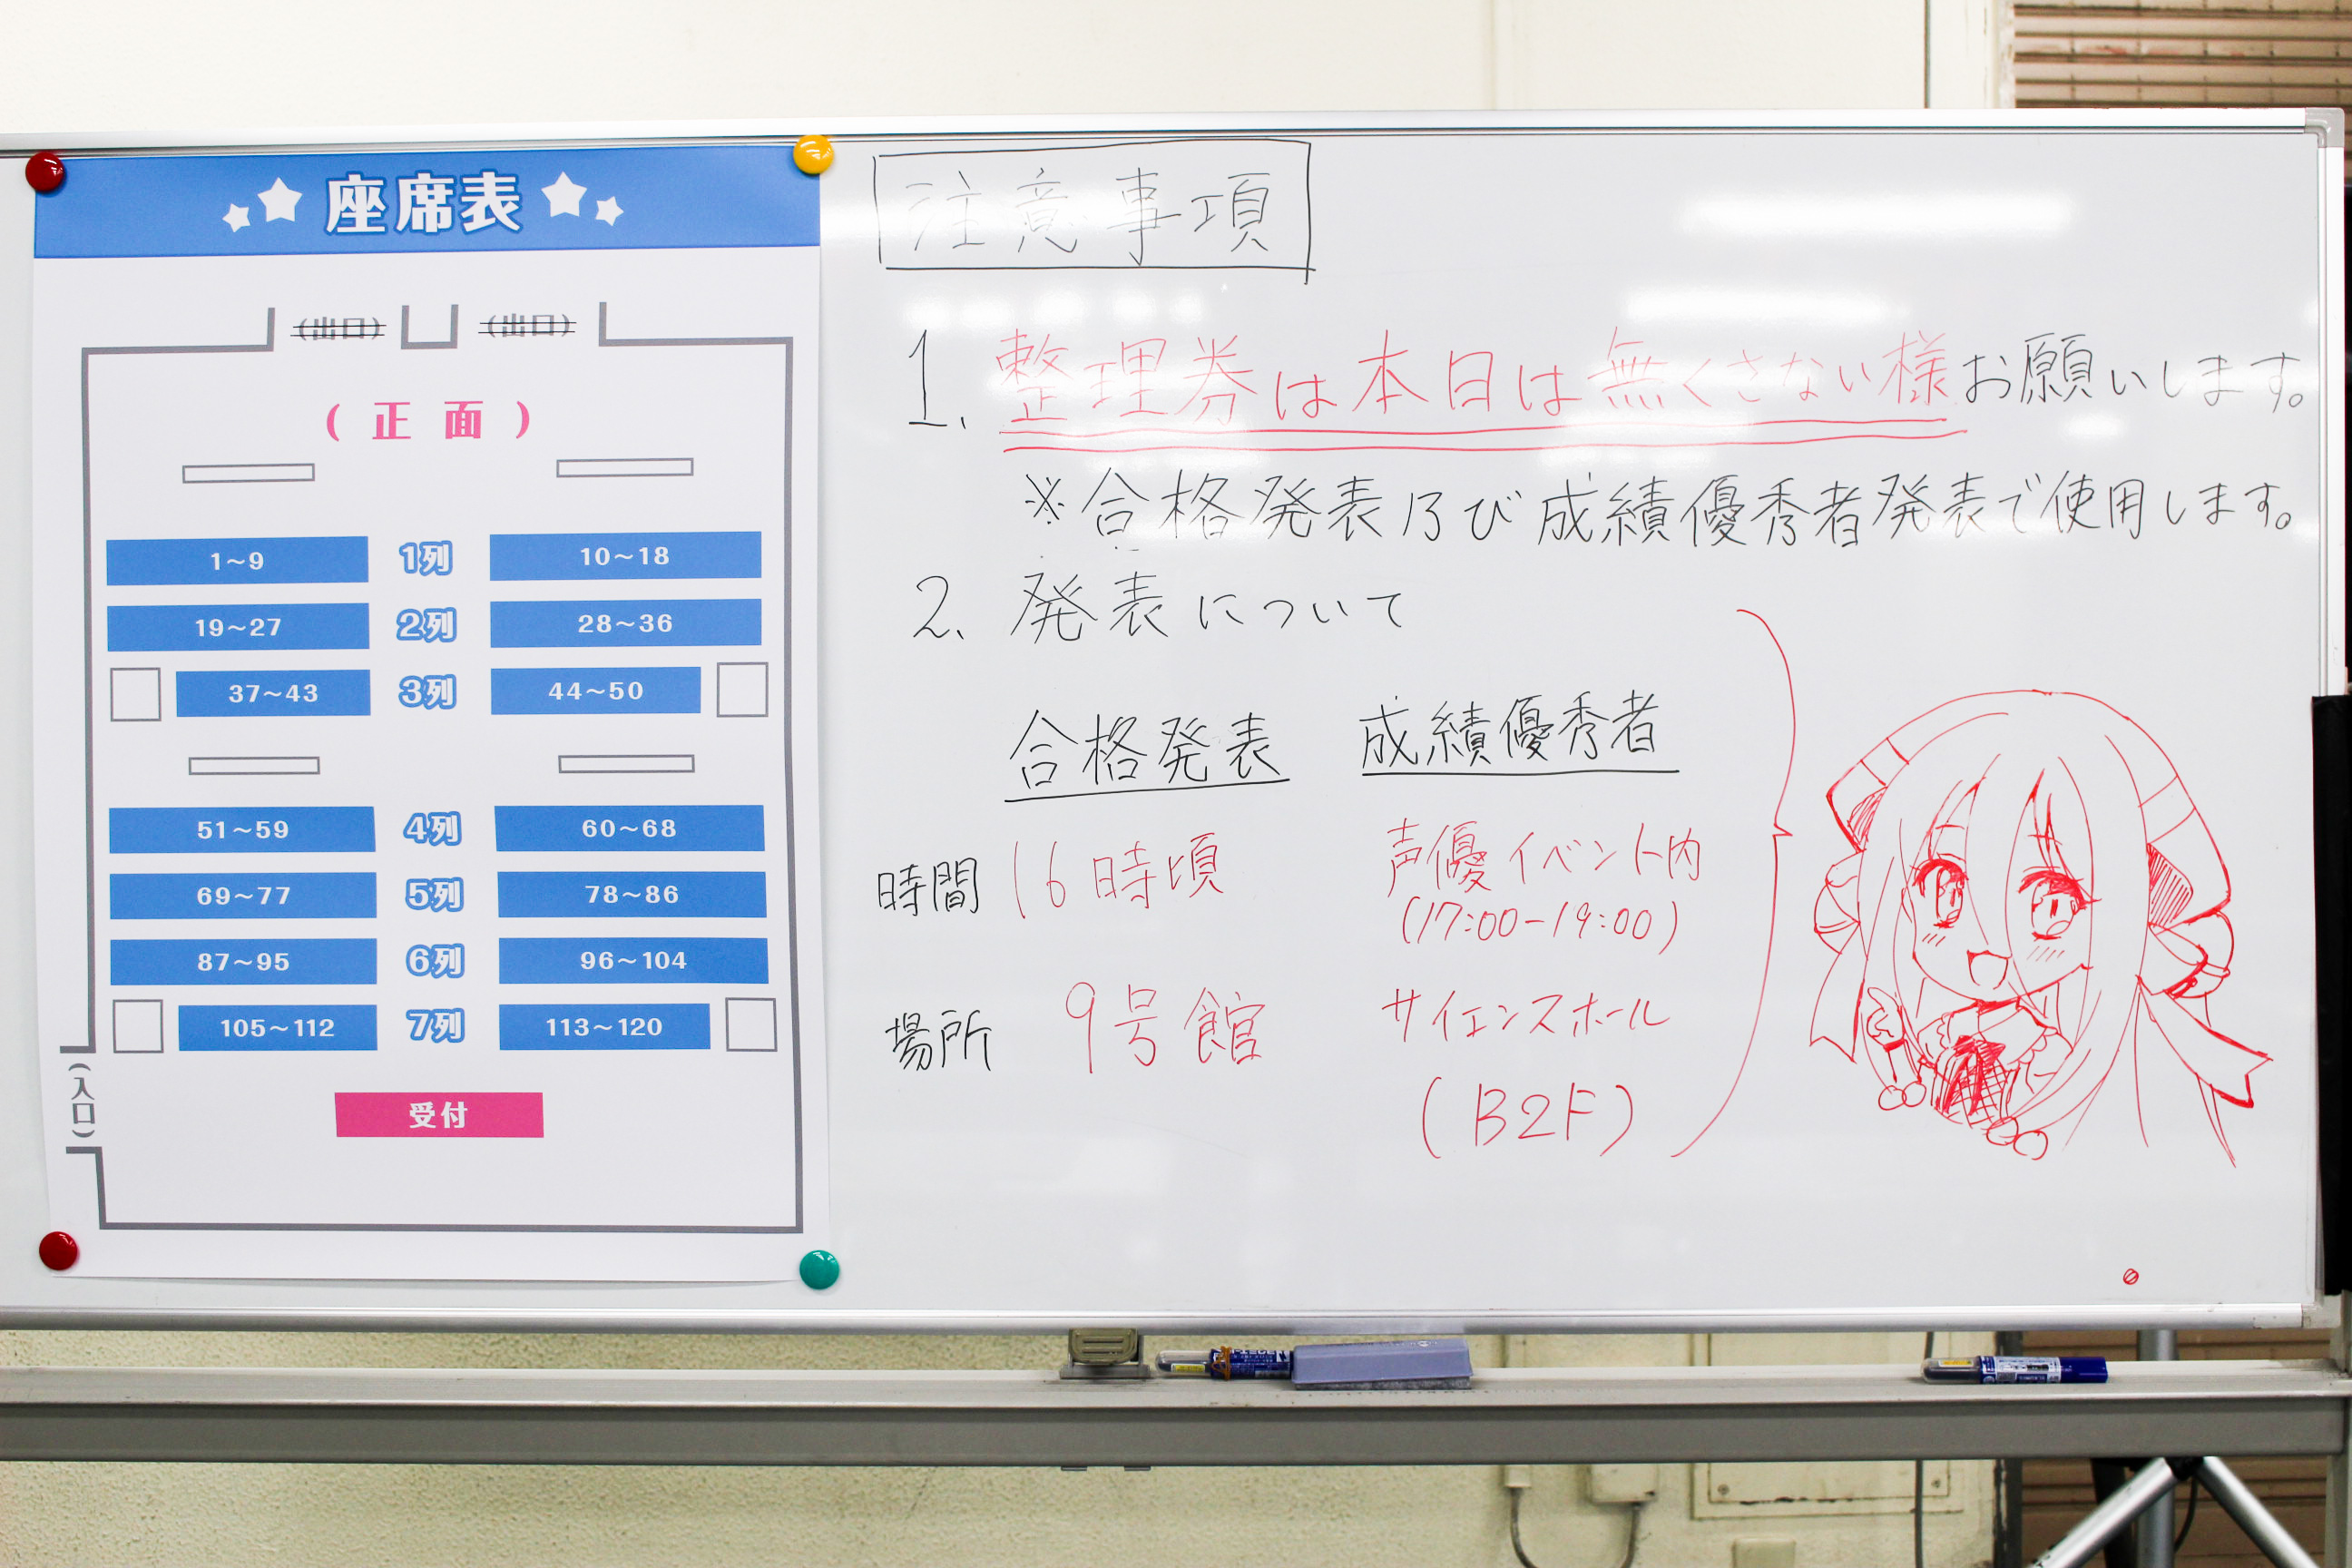 座席表
(出口) (出口)
(正面)
1~9 1列 10~18
19~27 2列 28~36
37~43 3列 44~50
51~59 4列 60~68
69~77 5列 78~86
87~95 6列 96~104
105~112 7列 113~120
(入口)
受付
注意事項
1. 整理券は本日は無くさない様お願いします。
※合格発表乃び成績優秀者発表で使用します。
2. 発表について
合格発表 成績優秀者
時間 16時頃 声優イベント内
(17:00-19:00)
場所 9号館 サイエンスホール
(B2F)